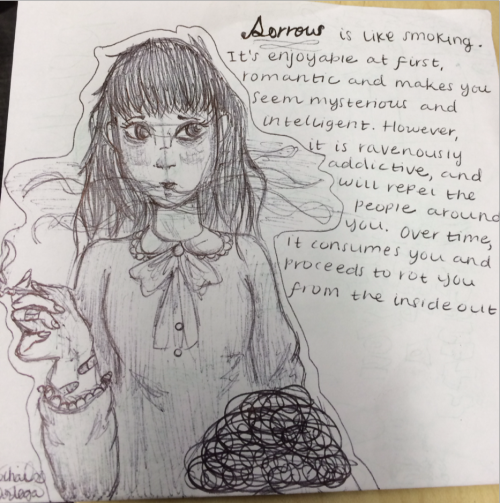 Sorrow is like smoking.
It's enjoyable at first,
romantic and makes you
seem mysterious and
intelligent. However,
it is ravenously
addictive, and
will repel the
people around
you. Over time,
it consumes you and
proceeds to rot you
from the inside out